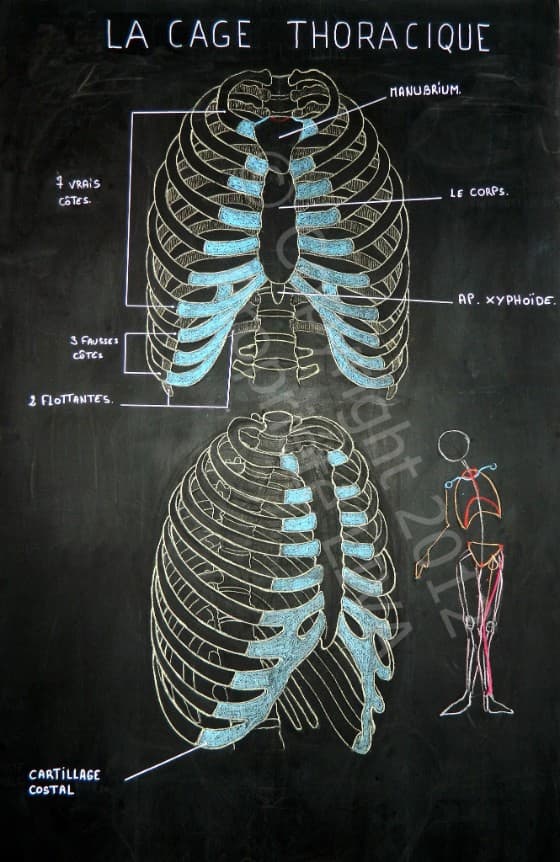 LA CAGE THORACIQUE
MANUBRIUM.
7 VRAIS
CÔTES.
LE CORPS.
AP. XYPHOÏDE.
3 FAUSSES
CÔTES
2 FLOTTANTES.
CARTILLAGE
COSTAL